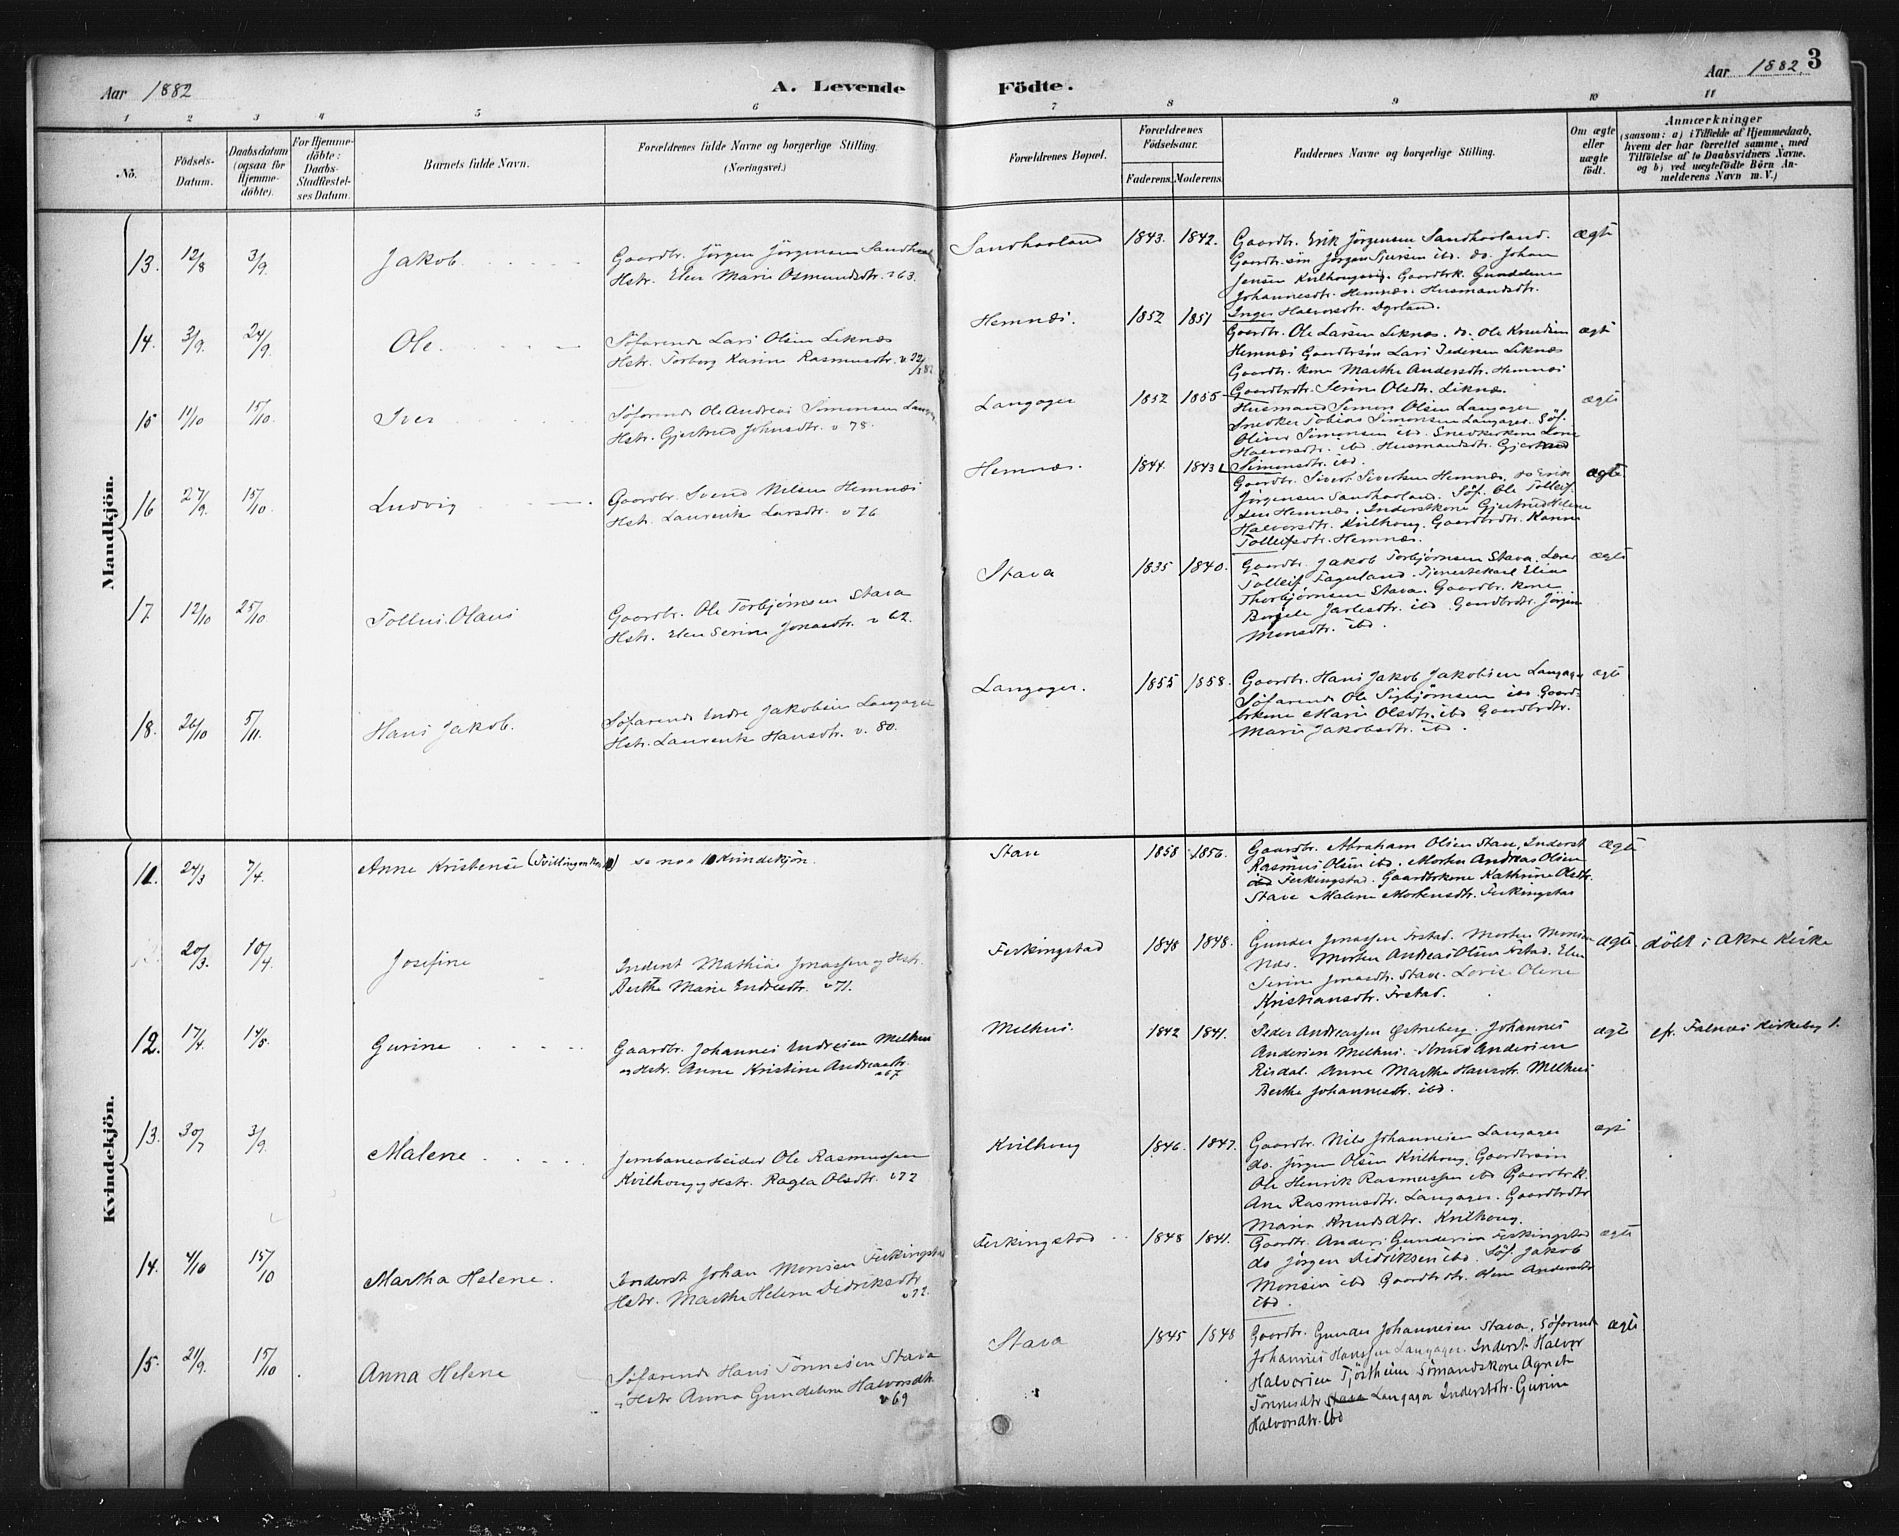 Aar 1882
A. Levende
Födte.
Aar 1882. 3
1 2 3 4 5 6 7 8 9 10 11
No.
Födsels-
Datum.
Daabsdatum
(ogsaa for
Hjemme-
döbte).
For Hjemme-
döbte:
Daabs-
Stadfæstel-
ses Datum.
Barnets fulde Navn.
Forældrenes fulde Navne og borgerlige Stilling.
(Næringsvei.)
Forældrenes Bopæl.
Forældrenes
Födselsaar.
Faderens. Moderens.
Faddernes Navne og borgerlige Stilling.
Om ægte
eller
uægte
födt.
Anmærkninger
(saasom: a) i Tilfælde af Hjemmedaab,
hvem der har forrettet samme, med
Tilföielse af to Daabsvidners Navne.
og b) ved uægtefödte Börn An-
melderens Navn m. V.)
Mandkjön.
13. 12/8 3/9. Jakob.
Gaardbr. Jörgen Jörgensen
Hstr. Elen Marie Osmundsdtr. v 63.
Sandhaaland 1843. 1842.
Gaardbr. Erik Jörgensen Sandhaaland.
Gaardbr.sön Jörgen Sjursen ibd. do. Johan
Jensen Gaardbrk. Gundelene
Johannesdtr. Hemnæs. Husmandsdtr.
Inger Halvorsdtr.
ægte
14. 3/9. 24/9. Ole.
Söfarende Lars Olsen Liknæs
Hstr. Torborg Karine Rasmusdtr.
Hemnæs. 1852 1851
Gaardbr. Ole Larsen Liknæs. do. Ole Knudsen
Hemnæs Gaardbrsön Lars Pedersen Liknæs
Gaardbr. kone Marthe Andersdtr. Hemnæs
Gaardbrdtr. Serine Olsdtr. Liknæs.
ægte
15 11/10 15/10. Iver
Söfarende Ole Andreas Simonsen
Hstr. Gjertrud Johnsdtr. v 78.
Langager 1852 1855
Husmand Simon Olsen Langager
Snedker Tobias Simonsen Langager. Söf.
Oliver Simonsen ibd. Snedkerkone
Halvorsdtr. ibd. Husmandsdtr. Gjertrud
Simonsdtr. ibd.
ægte
16 27/9. 15/10. Ludvig
Gaardbr. Svend Nilsen Hemnæs
Hstr. Laurentse Larsdtr. v 76
Hemnæs. 1844. 1843
Gaardbr. Sivert Sivertsen Hemnæs. do Erik
Jörgensen Sandhaaland. Söf. Ole Tolleif-
sen Hemnæs. Inderstkone Gjertrud Helene
Halvorsdtr. Kvilhoug. Gaardbrdtr. Karen
Tolleifsdtr. Hemnæs.
ægte
17. 12/10 25/10. Olaus
Gaardbr. Ole Torbjörnsen Stava
Hstr. Elen Serine Jonasdtr. v 62.
Stava 1835 1840.
Gaardbr. Jakob Torbjörnsen Stava. Lærer
Tolleif Fagerland. Tjenestekarl Elias
Thorbjörnsen Stava. Gaardbr. kone
Jarlesdtr. ibd. Gaardbrdtr.
Monsdtr. ibd.
ægte
18. 26/10 5/11. Hans Jakob.
Söfarende Endre Jakobsen Langager
Hstr. Laurentse Hansdtr. v. 80.
Langager. 1855 1858.
Gaardbr. Hans Jakob Jakobsen Langager
Söfarende Ole Sigbjörnsen ibd. Gaard-
brkone Marie Olsdtr. ibd Gaardbrdtr.
Marie Jakobsdtr. ibd.
ægte
Kvindekjön.
11. 24/3 7/4. Anne Kristense se no Kvindekjön.
Stave 1858 1856.
Gaardbr. Abraham Olsen Stave, Inderst
Rasmus Olsen ibd. Morten Andreas Olsen
Ferkingstad. Gaardbrkone Kathrine Olsdtr.
Stave Malene Mortensdtr. Ferkingstad
ægte
20/3. 10/4. Josefine
Inderst Mathias Jonassen og Hstr.
Berthe Marie Endresdtr. v 71.
Ferkingstad 1848 1848.
Gunder Jonassen Frstad. Morten Monsen
Næs. Morten Andreas Olsen Frstad. Elen
Serine Jonasdtr. Stave. Lovise Olene
Kristiansdtr. Frstad.
ægte döbt i Akre Kirke
12. 17/4. 14/5. Gurine
Gaardbr. Johannes Endresen Melhus
og Hstr. Anne Kristine Andreasdtr.
v 67
Melhus. 1842 1841.
Peder Andreassen Östreberg. Johannes
Andersen Melhus. Knud Andersen
Risdal. Anne Marthe Hansdtr. Melhus
Berthe Johannesdtr. ibd.
ægte cfr. Falnæs Kirkebog 1.
13. 30/7 3/9. Malene
Jernbanearbeider Ole Rasmussen
Kvilhoug og Hstr. Ragla Olsdtr. v 72
Kvilhoug 1846. 1847.
Gaardbr. Nils Johannesen Langager
do. Jörgen Olsen Kvilhoug. Gaardbrsön
Ole Henrik Rasmussen ibd Gaardbr. k.
Ane Rasmusdtr. Langager. Gaardbrdtr
Maria Knudsdtr. Kvilhoug.
14. 4/10 15/10 Martha Helene.
Inderst Johan Monsen Ferkingstad
Hstr. Marthe Helene Didriksdtr
v 72.
Ferkingstad 1848 1841.
Gaardbr. Anders Gundersen Ferkingstad
do Jörgen Didriksen ibd. Söf. Jakob
Monsen ibd Gaardbrdtr. Olene Andersdtr
ibd.
ægte
15. 21/9. 15/10 Anna Helene
Söfarende Hans Tönnesen Stava
Hstr Anna Gundeline Halvorsdtr.
v 69
Stava 1845 1848
Gaardbr. Gunder Johannesen Stava, Söfarende
Johannes Hanssen Langager. Inderst Halvor
Halvorsen Tjöstheim Sömandskone Agnete
Tönnesdtr Stava Langager Inderstdtr. Gurine
Halvorsdtr. ibd
ægte